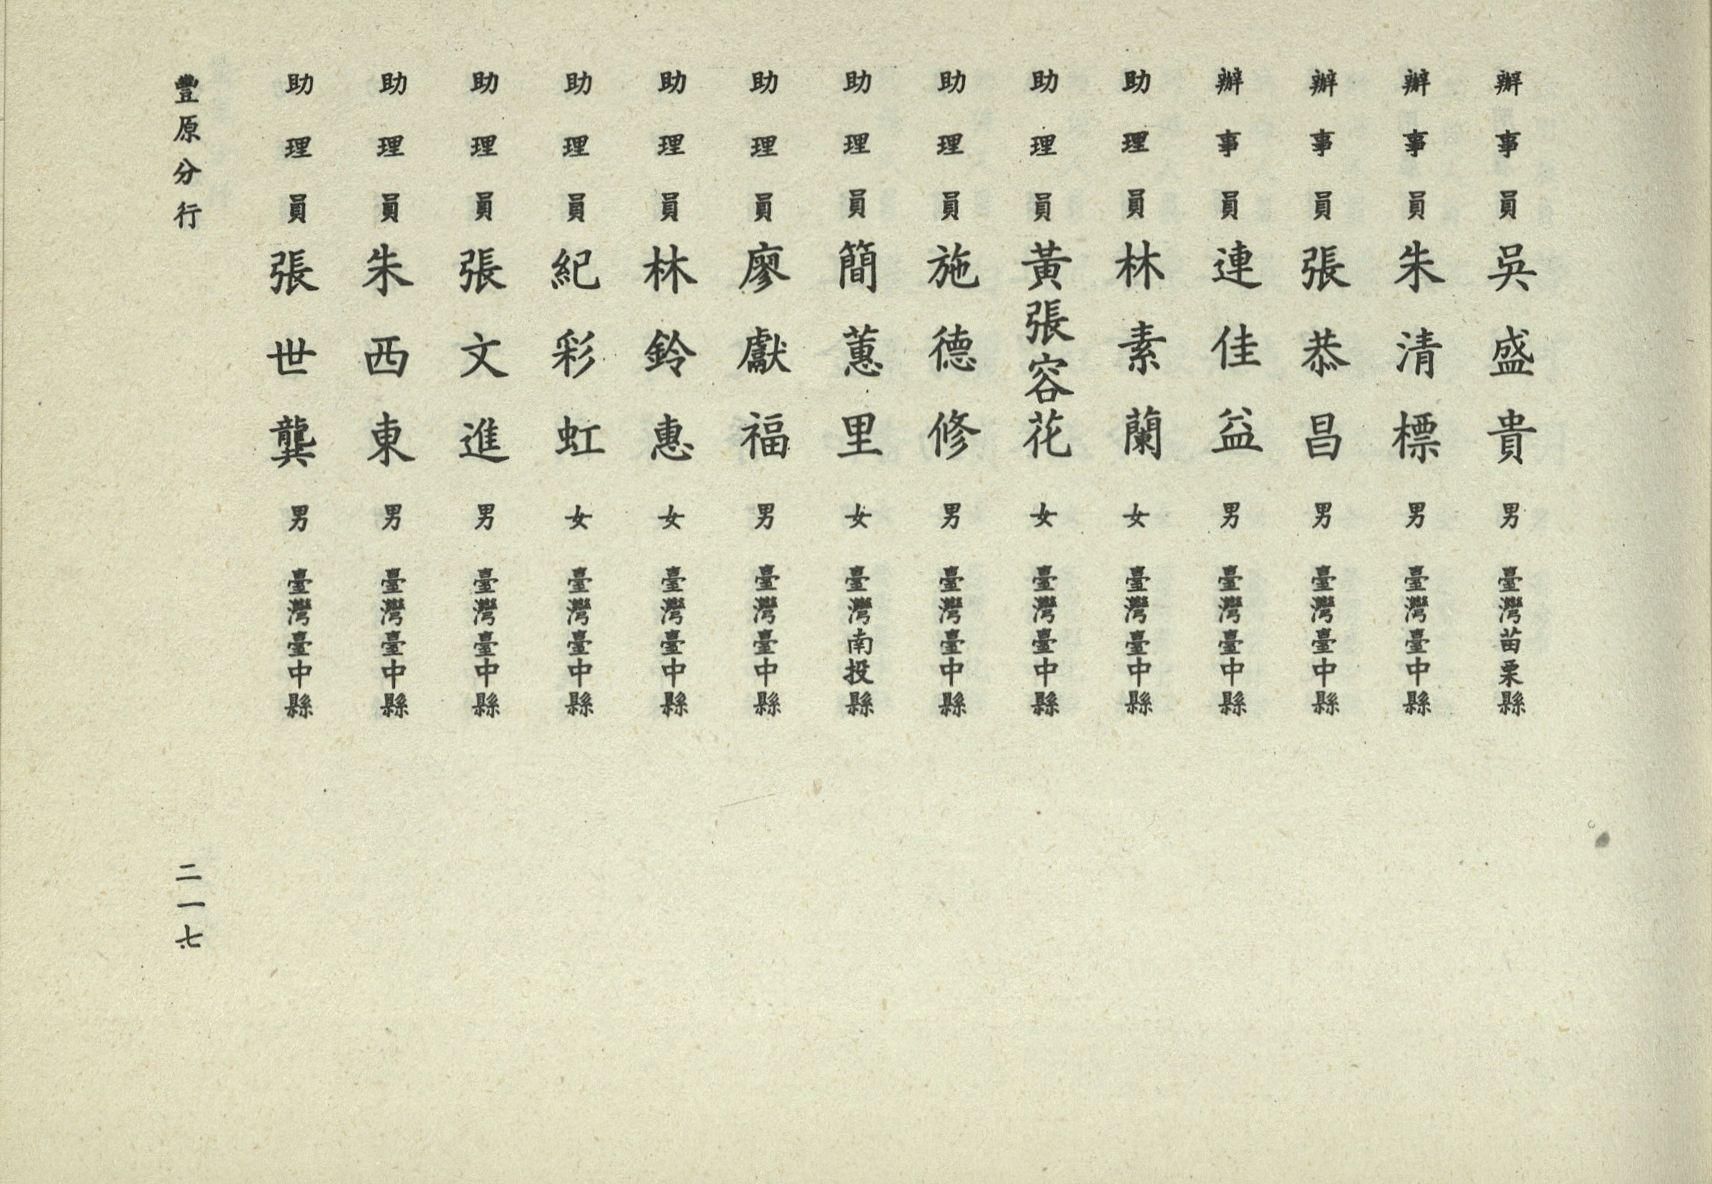 辦事員吳盛貴男臺灣苗栗縣
辦事員朱清標男臺灣臺中縣
辦事員張恭昌男臺灣臺中縣
辦事員連佳益男臺灣臺中縣
助理員林素蘭女臺灣臺中縣
助理員黃張容花女臺灣臺中縣
助理員施德修男臺灣臺中縣
助理員簡蕙里女臺灣南投縣
助理員廖獻福男臺灣臺中縣
助理員林鈴惠女臺灣臺中縣
助理員紀彩虹女臺灣臺中縣
助理員張文進男臺灣臺中縣
助理員朱西東男臺灣臺中縣
助理員張世龔男臺灣臺中縣
豐原分行
二一七